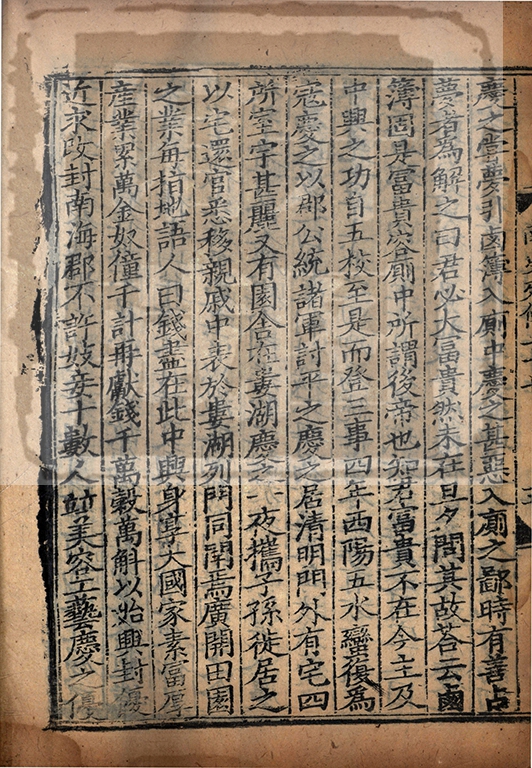 慶之嘗夢引鹵簿入廁中慶之甚惡入廁之鄙時有善占
夢者為解之曰君必大富貴然未在旦夕問其故荅云鹵
簿固是富貴容廁中所謂後帝也知君富貴不在今主及
中興之功自五校至是而登三事四年西陽五水蠻復為
寇慶之以郡公統諸軍討平之慶之居清明門外有宅四
所室宇甚麗又有園舍在婁湖慶之一夜攜子孫徙居之
以宅還官悉移親戚中表於婁湖列門同閈焉廣開田園
之業每指地語人曰錢盡在此中興身享大國家素富厚
產業累萬金奴僮千計再獻錢千萬穀萬斛以始興封優
近求改封南海郡不許妓妾十數人並美容工藝慶之優